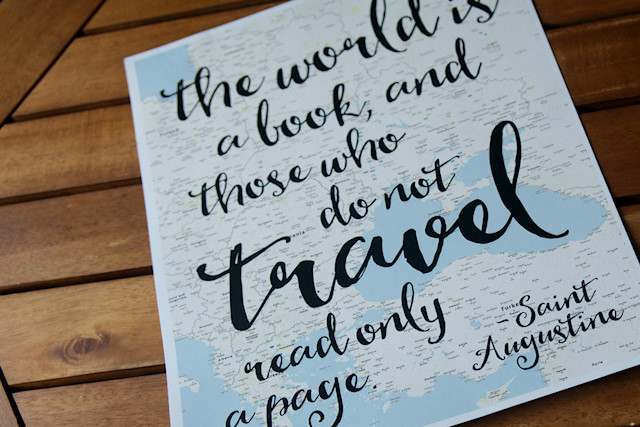 the world is
a book, and
those who
do not
travel
read only
a page.
- Saint
Augustine